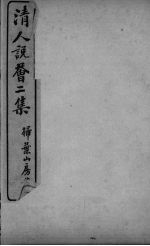 清人說薈二集
掃葉山房